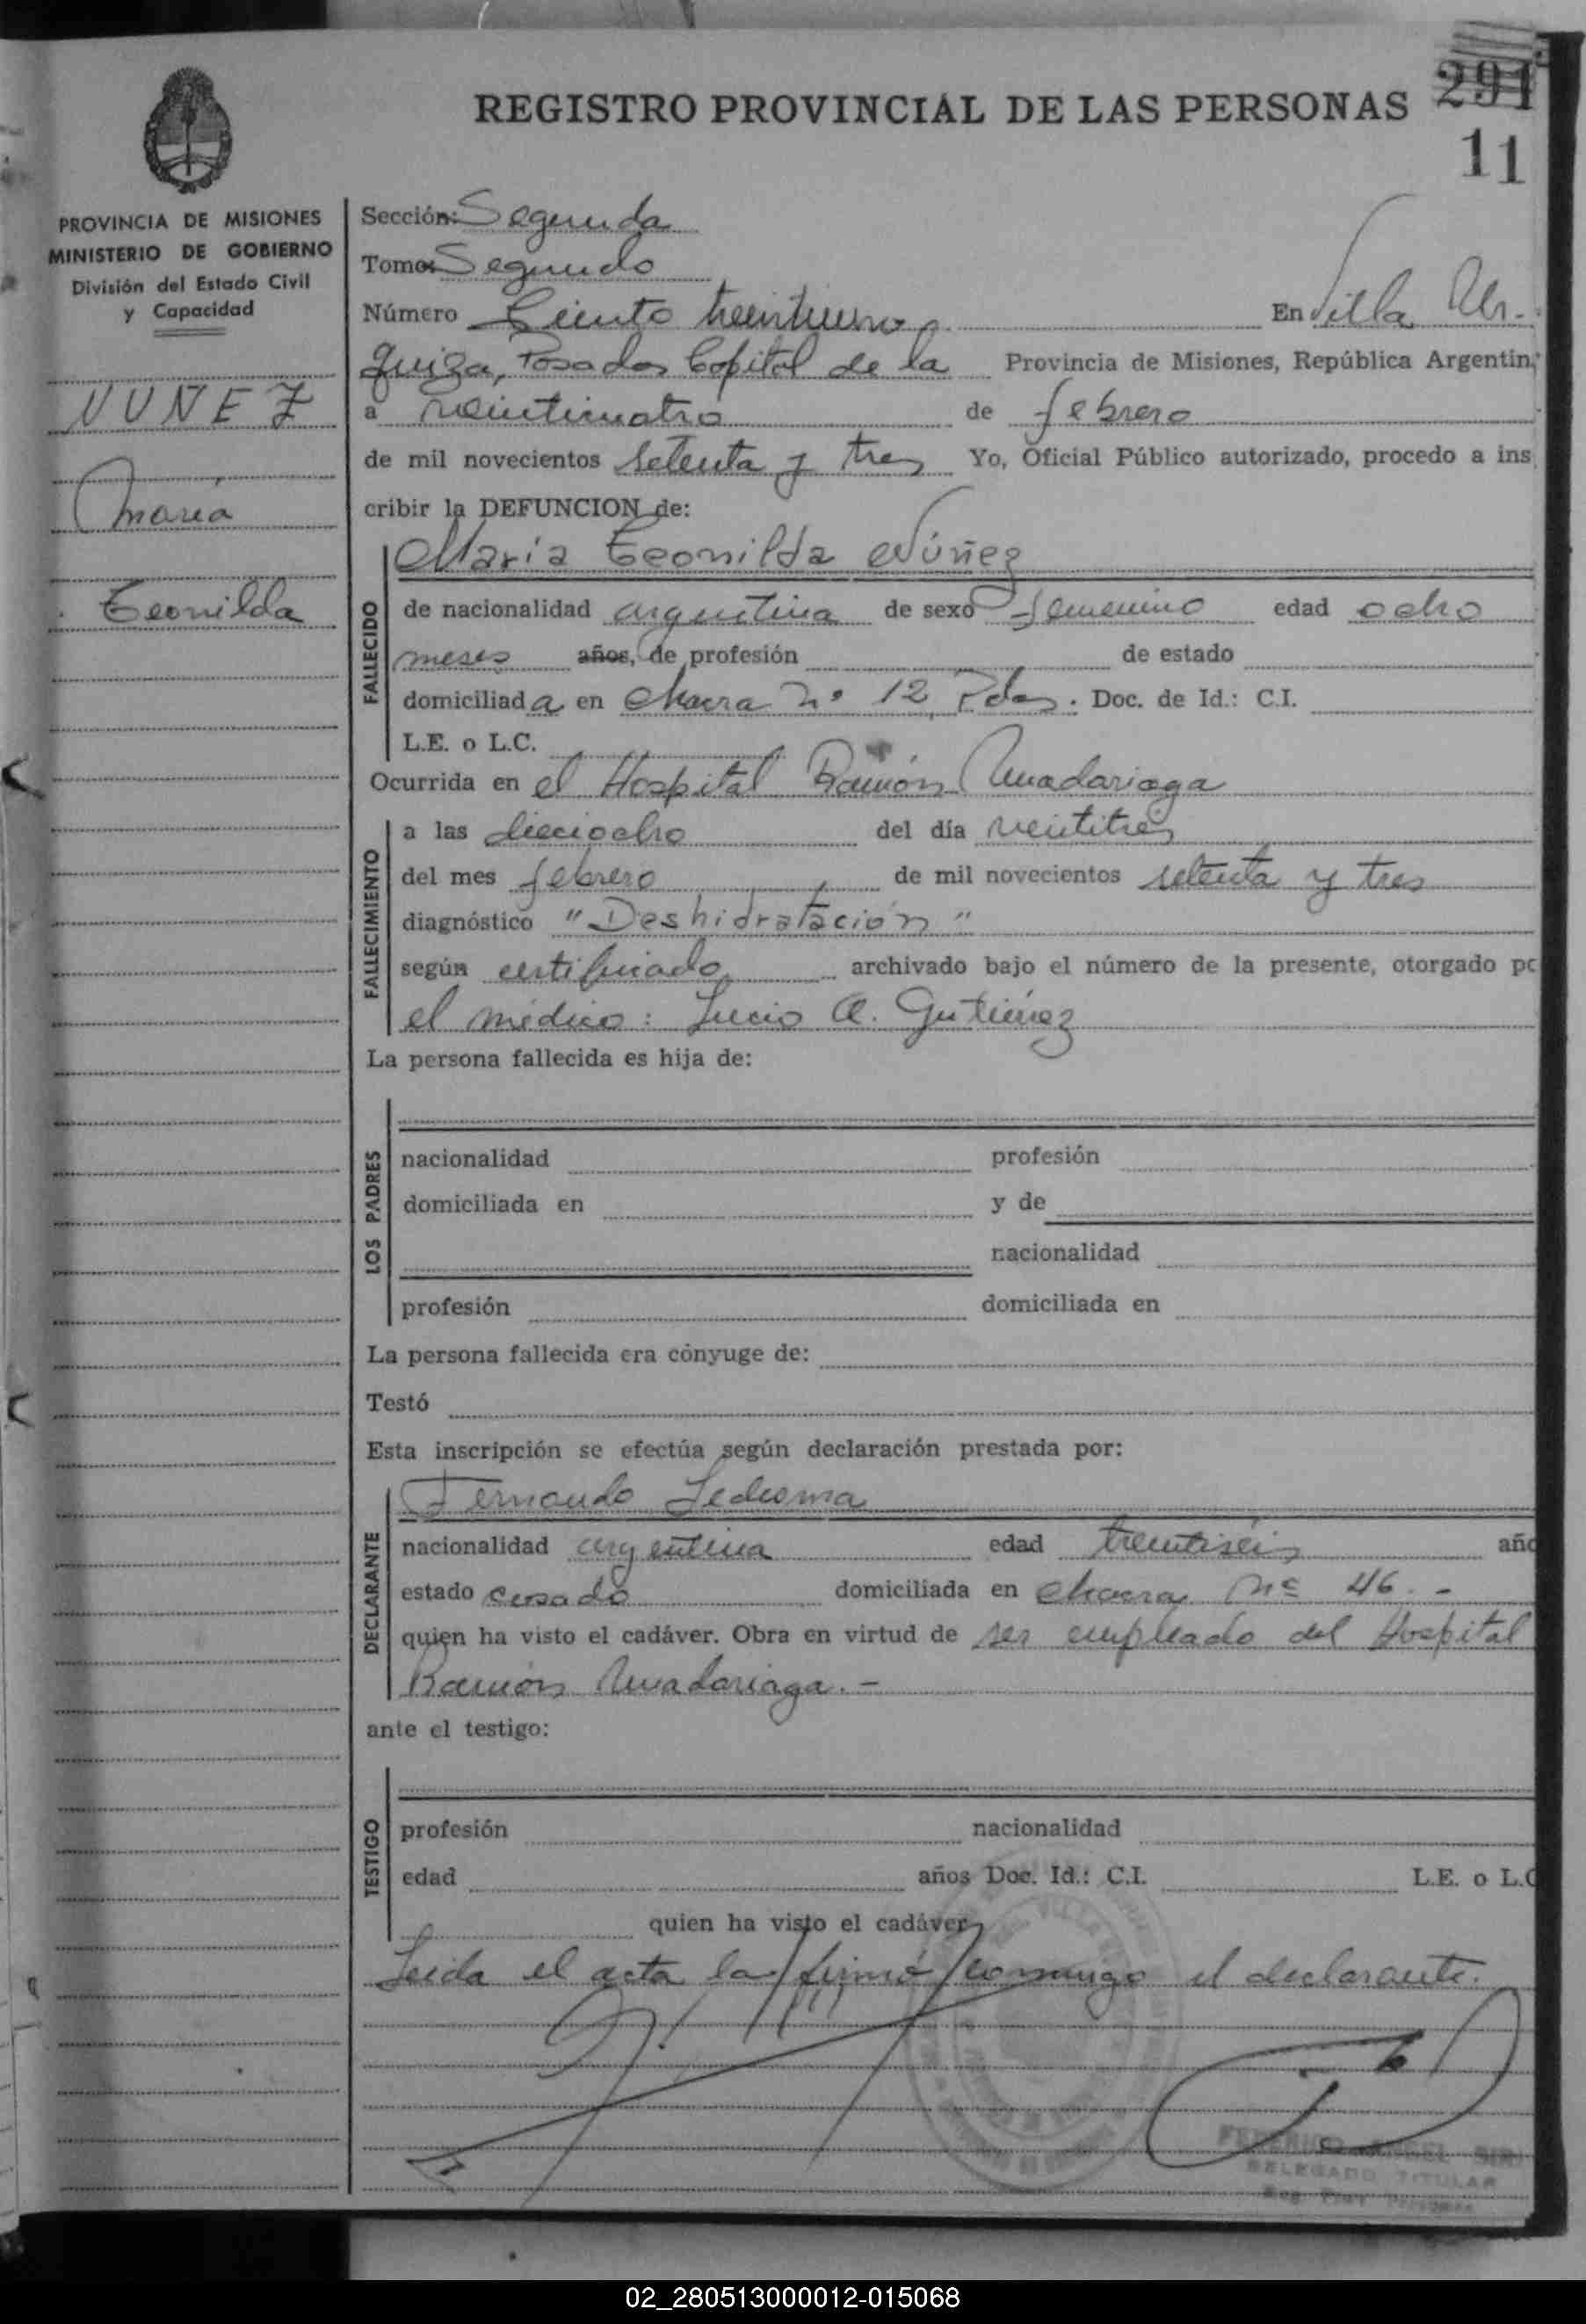 291
REGISTRO PROVINCIAL DE LAS PERSONAS
11
PROVINCIA DE MISIONES
MINISTERIO DE GOBIERNO
División del Estado Civil
y Capacidad
NUÑEZ
María
Teonilda
Sección: Segunda
Tomo: Segundo
Número Ciento treintiuno. En Villa Ur-
quiza, Posadas Capital de la Provincia de Misiones, República Argentin
a veinticuatro de febrero
de mil novecientos setenta y tres Yo, Oficial Público autorizado, procedo a ins
cribir la DEFUNCION de:
FALLECIDO
María Teonilda Núñez
de nacionalidad argentina de sexo femenino edad ocho
meses años, de profesión de estado
domiciliada en chacra nº 12, Pdas. Doc. de Id.: C.I.
L.E. o L.C.
Ocurrida en el Hospital Ramón Madariaga
FALLECIMIENTO
a las dieciocho del día veintitres
del mes febrero de mil novecientos setenta y tres
diagnóstico "Deshidratación"
según certificado archivado bajo el número de la presente, otorgado po
el médico: Lucio A. Gutiérrez
La persona fallecida es hija de:
LOS PADRES
nacionalidad profesión
domiciliada en y de
nacionalidad
profesión domiciliada en
La persona fallecida era cónyuge de:
Testó
Esta inscripción se efectúa según declaración prestada por:
DECLARANTE
Fernando Ledesma
nacionalidad argentina edad treintiséis año
estado casado domiciliada en chacra Nº 46.-
quien ha visto el cadáver. Obra en virtud de ser empleado del Hospital
Ramón Madariaga.-
ante el testigo:
TESTIGO
profesión nacionalidad
edad años Doc. Id.: C.I. L.E. o L.C
quien ha visto el cadáver
Leída el acta la firmó conmigo el declarante.
DELEGADO TITULAR
02_280513000012-015068